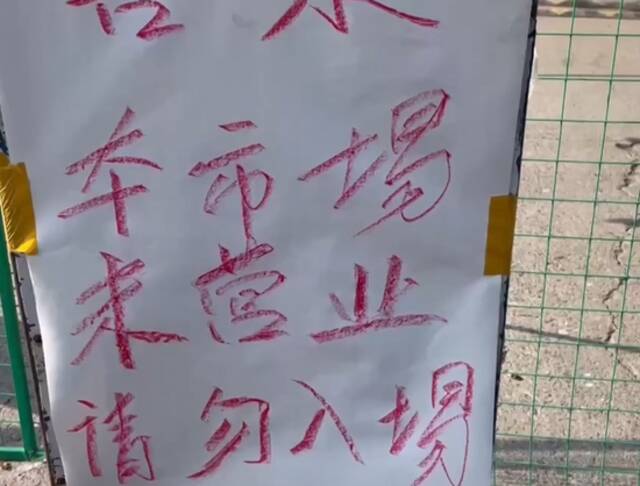 本市場
未营业
请勿入場